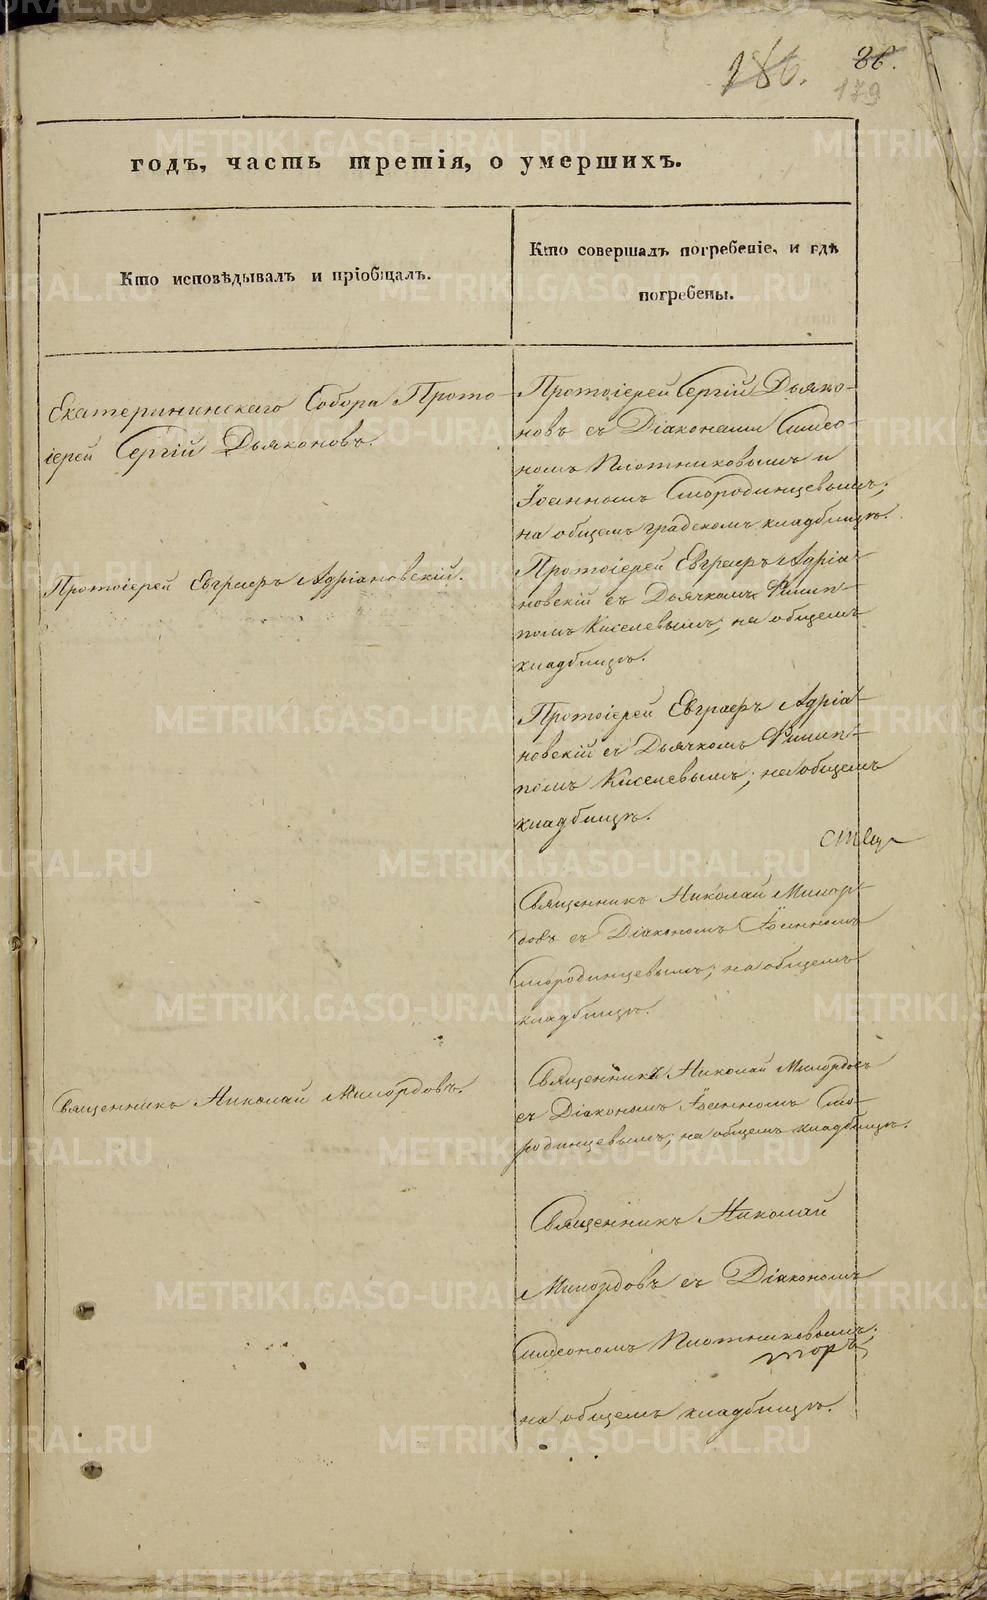 186.
86.
179
годъ, часть третія, о умершихъ.
Кто исповѣдывалъ и пріобщалъ.
Кто совершалъ погребеніе, и гдѣ
погребены.
Екатерининскаго Собора Прото-
іерей Сергій Дьяконовъ.
Протоіерей Сергій Дьяко-
новъ съ Діаконами Симео-
номъ Плотниковымъ и
Іоанномъ Смородинцевымъ;
на общемъ градскомъ кладбищѣ.
Протоіерей Евграфъ Адріановскій.
Протоіерей Евграфъ Адріа-
новскій съ Дьячкомъ Филип-
помъ Киселевымъ; на общемъ
кладбищѣ.
Протоіерей Евграфъ Адріа-
новскій съ Дьячкомъ Филип-
помъ Киселевымъ; на общемъ
кладбищѣ.
Священникъ Николай Милор-
довъ съ Діакономъ Іоанномъ
Смородинцевымъ; на общемъ
кладбищѣ.
Священникъ Николай Милордовъ.
Священникъ Николай Милордовъ
съ Діакономъ Іоанномъ Смо-
родинцевымъ; на общемъ кладбищѣ.
Священникъ Николай
Милордовъ съ Діакономъ
Симеономъ Плотниковымъ;
на общемъ кладбищѣ.
METRIKI.GASO-URAL.RU